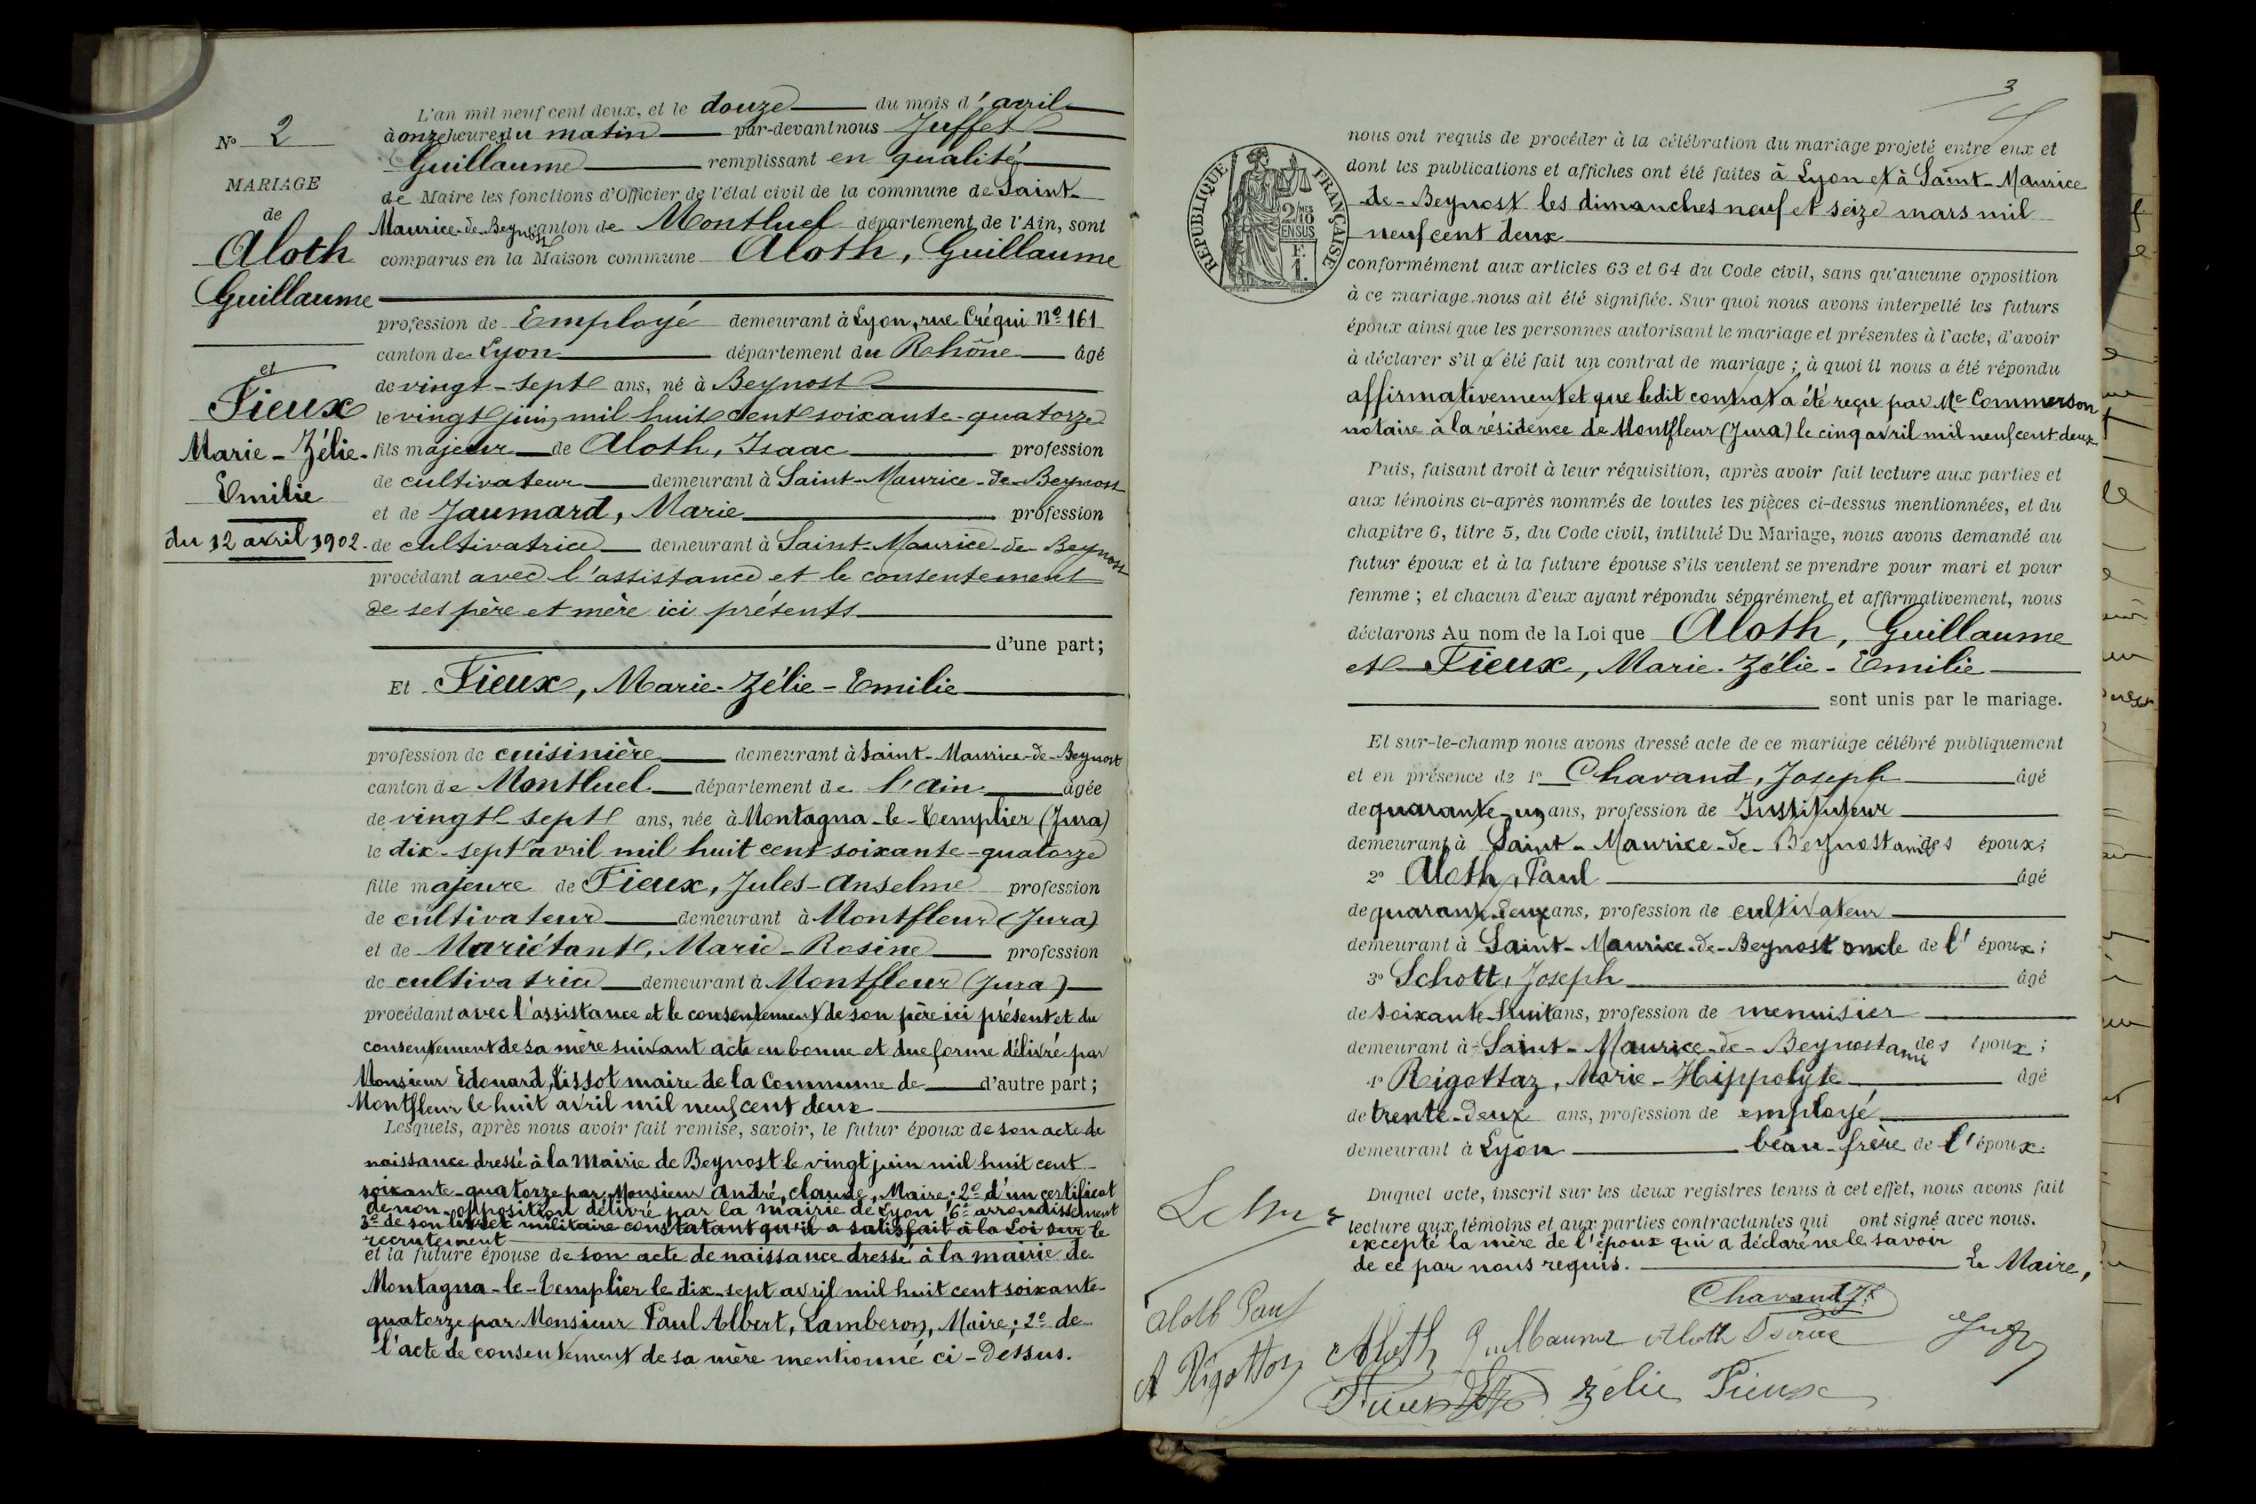 N° 2
MARIAGE
de
Aloth
Guillaume
et
Fieux
Marie-Zélie-
Emilie
du 12 avril 1902.
L'an mil neuf cent deux, et le douze du mois d'avril
à onze heures du matin par-devant nous Juffet
Guillaume remplissant en qualité
de Maire les fonctions d'Officier de l'état civil de la commune de Saint-
Maurice-de-Beynost canton de Montluel département de l'Ain, sont
comparus en la Maison commune Aloth, Guillaume
profession de Employé demeurant à Lyon, rue Créqui N° 161
canton de Lyon département du Rohône âgé
de vingt-sept ans, né à Beynost
le vingt juin mil huit cent soixante-quatorze
fils majeur de Aloth, Isaac profession
de cultivateur demeurant à Saint-Maurice-de-Beynost
et de Jaumard, Marie profession
de cultivatrice demeurant à Saint-Maurice-de-Beynost
procédant avec l'assistance et le consentement
de ses père et mère ici présents
d'une part;
Et Fieux, Marie-Zélie-Emilie
profession de cuisinière demeurant à Saint-Maurice-de-Beynost
canton de Montluel département de l'Ain âgée
de vingt-sept ans, née à Montagna-le-Templier (Jura)
le dix-sept avril mil huit cent soixante-quatorze
fille majeure de Fieux, Jules-Anselme profession
de cultivateur demeurant à Montfleur (Jura)
et de Mariétant, Marie-Rosine profession
de cultivatrice demeurant à Montfleur (Jura)
procédant avec l'assistance et le consentement de son père ici présent et du
consentement de sa mère suivant acte en bonne et due forme délivré par
Monsieur Edouard, Tissot maire de la Commune de d'autre part;
Montfleur le huit avril mil neuf cent deux
Lesquels, après nous avoir fait remise, savoir, le futur époux de son acte de
naissance dressé à la Mairie de Beynost le vingt juin mil huit cent-
soixante-quatorze par Monsieur André, Claude, Maire; 2° d'un certificat
de non-opposition délivré par la mairie de Lyon 6e arrondissement
3° de son livret militaire constatant qu'il a satisfait à la Loi sur le
recrutement
et la future épouse de son acte de naissance dressé à la mairie de
Montagna-le-Templier le dix-sept avril mil huit cent soixante-
quatorze par Monsieur Paul Albert, Lamberon, Maire; 2° de
l'acte de consentement de sa mère mentionné ci-dessus.
3
RÉPUBLIQUE FRANÇAISE
2/10 EN SUS
F.
1.
nous ont requis de procéder à la célébration du mariage projeté entre eux et
dont les publications et affiches ont été faites à Lyon et à Saint-Maurice
-de-Beynost les dimanches neuf et seize mars mil
neuf cent deux
conformément aux articles 63 et 64 du Code civil, sans qu'aucune opposition
à ce mariage nous ait été signifiée. Sur quoi nous avons interpellé les futurs
époux ainsi que les personnes autorisant le mariage et présentes à l'acte, d'avoir
à déclarer s'il a été fait un contrat de mariage; à quoi il nous a été répondu
affirmativement et que ledit contrat a été reçu par Me Commerson
notaire à la résidence de Montfleur (Jura) le cinq avril mil neuf cent deux
Puis, faisant droit à leur réquisition, après avoir fait lecture aux parties et
aux témoins ci-après nommés de toutes les pièces ci-dessus mentionnées, et du
chapitre 6, titre 5, du Code civil, intitulé Du Mariage, nous avons demandé au
futur époux et à la future épouse s'ils veulent se prendre pour mari et pour
femme; et chacun d'eux ayant répondu séparément et affirmativement, nous
déclarons Au nom de la Loi que Aloth, Guillaume
et Fieux, Marie-Zélie-Emilie
sont unis par le mariage.
Et sur-le-champ nous avons dressé acte de ce mariage célébré publiquement
et en présence de 1° Chavand, Joseph âgé
de quarante-un ans, profession de Instituteur
demeurant à Saint-Maurice-de-Beynost ami des époux;
2° Aloth, Paul âgé
de quarante-deux ans, profession de cultivateur
demeurant à Saint-Maurice-de-Beynost oncle de l'époux;
3° Schott, Joseph âgé
de soixante-huit ans, profession de menuisier
demeurant à Saint-Maurice-de-Beynost ami des époux;
4° Rigottaz, Marie-Hippolyte âgé
de trente-deux ans, profession de employé
demeurant à Lyon beau-frère de l'époux.
Duquel acte, inscrit sur les deux registres tenus à cet effet, nous avons fait
lecture aux témoins et aux parties contractantes qui ont signé avec nous.
excepté la mère de l'époux qui a déclaré ne le savoir
de ce par nous requis. Le Maire,
Chavand Jh
Aloth Paul
Aloth Guillaume Aloth Isaac
A Rigottaz
Fieux
Zélie Fieux